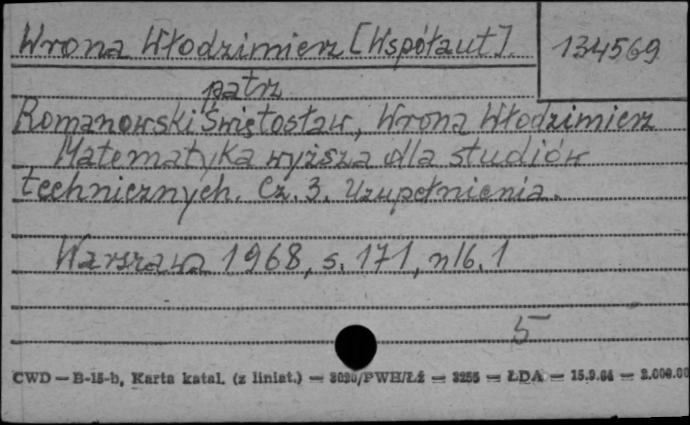 Wrona Włodzimierz [Współaut].
134569
patrz
Romanowski Świętosław, Wrona Włodzimierz
Matematyka wyższa dla studiów
technicznych. Cz. 3. Uzupełnienia.
Warszawa 1968, s. 171, nlb. 1
5
CWD — B-15-b, Karta katal. (z liniat.) — 3030/PWH/Łź — 3255 — ŁDA — 15.9.64 — 2.000.00